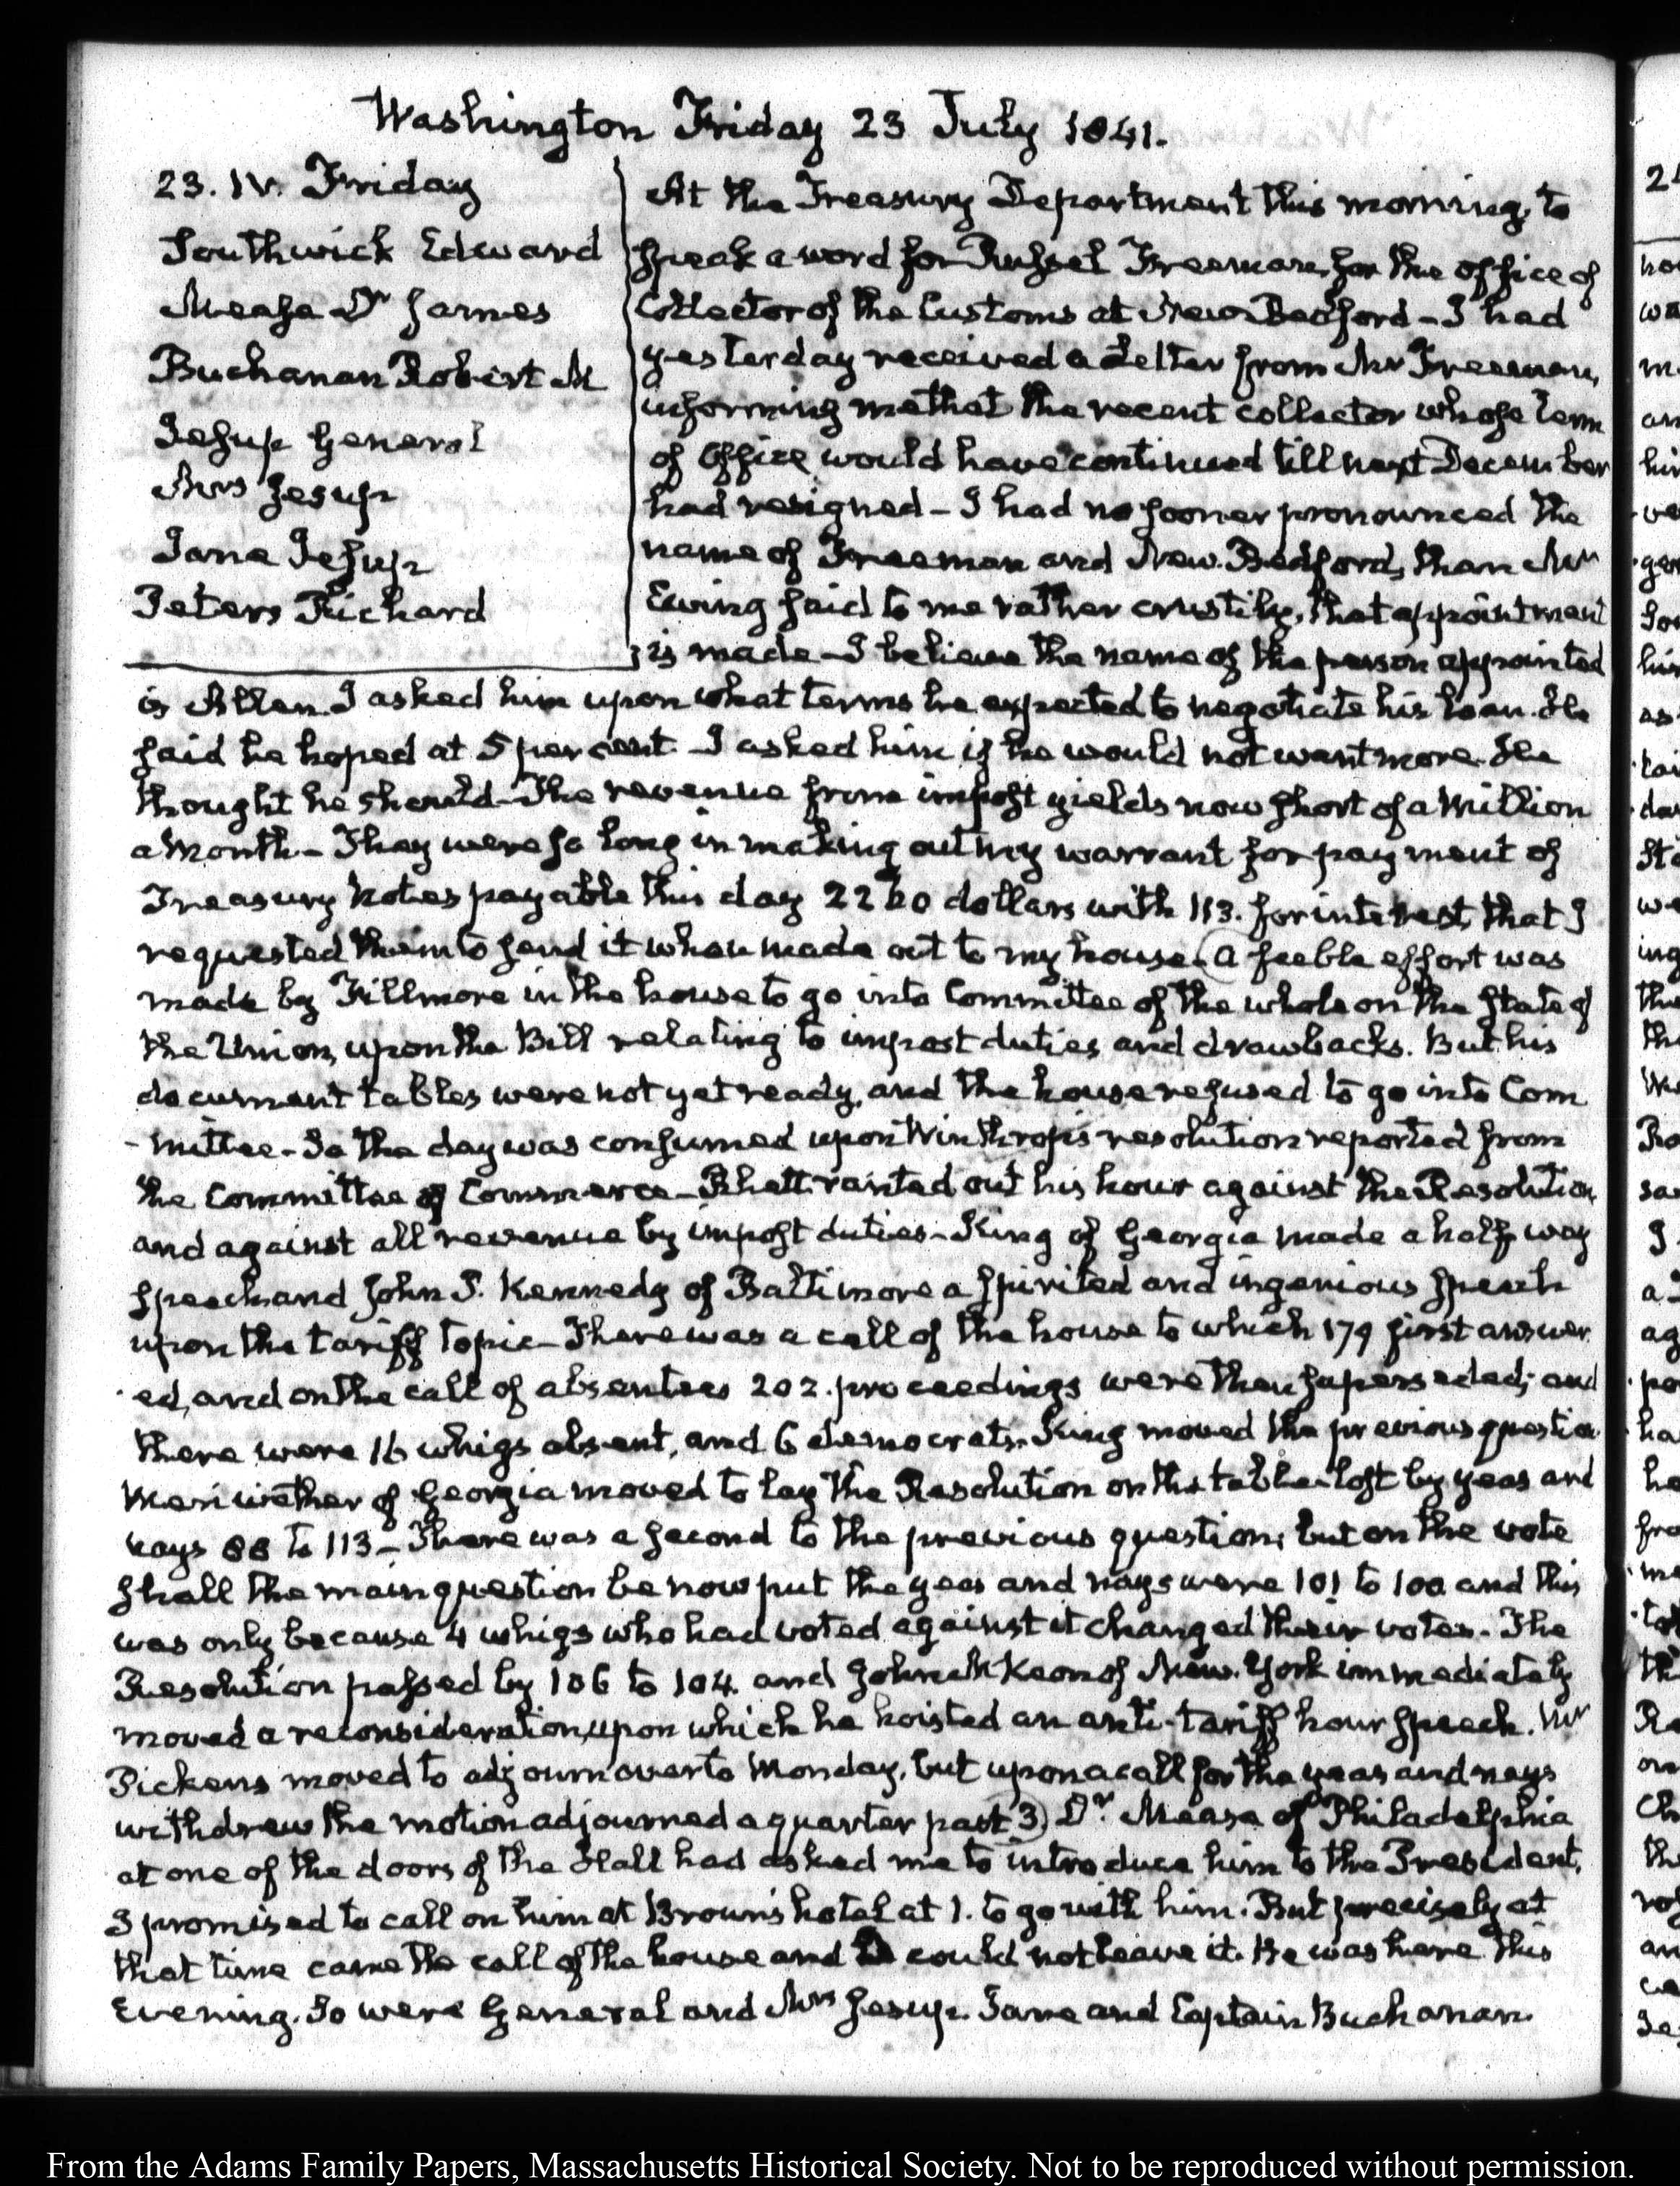 Washington Friday 23 July 1841.
23. IV. Friday
Southwick Edward
Mease Dr James
Buchanan Robert M
Jesup General
Mrs Jesup
Jane Jesup
Peters Richard
At the Treasury Department this morning, to
speak a word for Russel Freeman, for the office of
Collector of the Customs at New-Bedford – I had
yesterday received a letter from Mr Freeman,
informing me that the recent collector whose term
of Office would have continued till next December
had resigned – I had no sooner pronounced the
name of Freeman and New-Bedford, than Mr
Ewing said to me rather crustily, that appointment
is made – I believe the name of the person appointed
is Allen. I asked him upon what terms he expected to negotiate his loan. He
said he hoped at 5 per cent. I asked him if he would not want more. He
thought he should – The revenue from impost yields now short of a Million
a Month – They were so long in making out my warrant for payment of
Treasury Notes payable this day 2260 dollars with 113. for interest, that I
requested them to send it when made out to my house. A feeble effort was
made by Fillmore in the house to go into Committee of the whole on the State of
the Union, upon the Bill relating to impost duties and drawbacks. But his
document tables were not yet ready, and the house refused to go into Com
-mittee – So the day was consumed upon Winthrop's resolution reported from
the Committee of Commerce – Rhett ranted out his hour against the Resolution
and against all revenue by impost duties – King of Georgia made a half way
speech, and John P. Kennedy of Baltimore a spirited and ingenious speech
upon the tariff topic – There was a call of the house to which 179 first answer
-ed, and on the call of absentees 202. proceedings were then superseded; and
there were 16 whigs absent, and 6 democrats. King moved the previous question
Meriwether of Georgia moved to lay the Resolution on the table – lost by yeas and
nays 88 to 113 – There was a second to the previous question; but on the vote
shall the main question be now put the yeas and nays were 101 to 100 and this
was only because 4 whigs who had voted against it changed their votes. The
Resolution passed by 106 to 104. and John McKeon of New-York immediately
moved a reconsideration, upon which he hoisted an anti-tariff hour speech. Mr
Pickens moved to adjourn over to Monday, but upon a call for the yeas and nays
withdrew the motion adjourned a quarter past 3) Dr. Mease of Philadelphia
at one of the doors of the Hall had asked me to introduce him to the President.
I promised to call on him at Brown's hotel at 1. to go with him. But precisely at
that time came the call of the house and I could not leave it. He was here this
Evening. So were General and Mrs Jesup. Jane and Captain Buchanan.
From the Adams Family Papers, Massachusetts Historical Society. Not to be reproduced without permission.